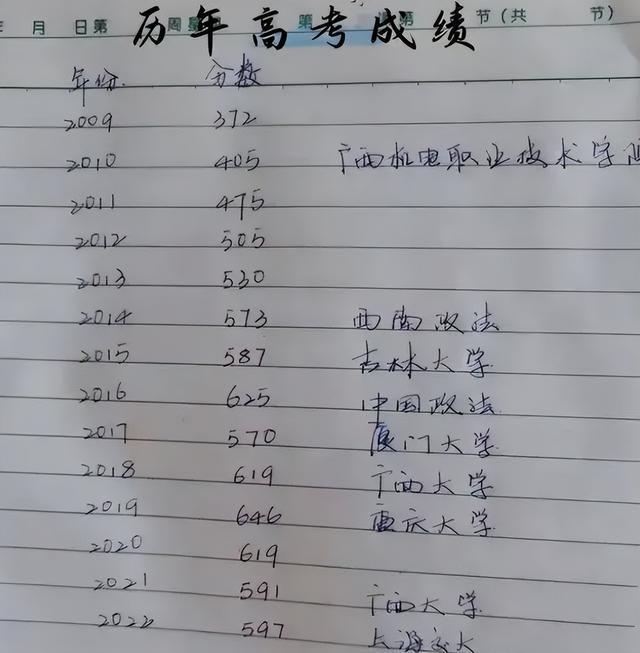 月 日第 周星 第 第 节(共 节)
历年高考成绩
年份 分数
2009 372
2010 405 广西机电职业技术学
2011 475
2012 505
2013 530
2014 573 西南政法
2015 587 吉林大学
2016 625 中国政法
2017 570 厦门大学
2018 619 广西大学
2019 646 重庆大学
2020 619
2021 591 广西大学
2022 597 上海交大